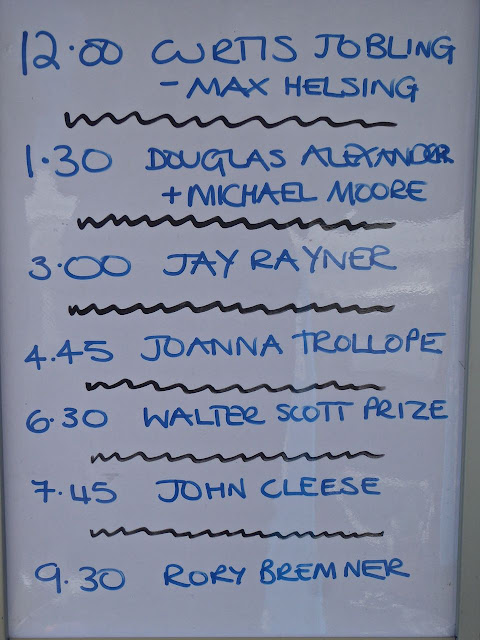 12.00 CURTIS JOBLING
- MAX HELSING
1.30 DOUGLAS ALEXANDER
+ MICHAEL MOORE
3.00 JAY RAYNER
4.45 JOANNA TROLLOPE
6.30 WALTER SCOTT PRIZE
7.45 JOHN CLEESE
9.30 RORY BREMNER